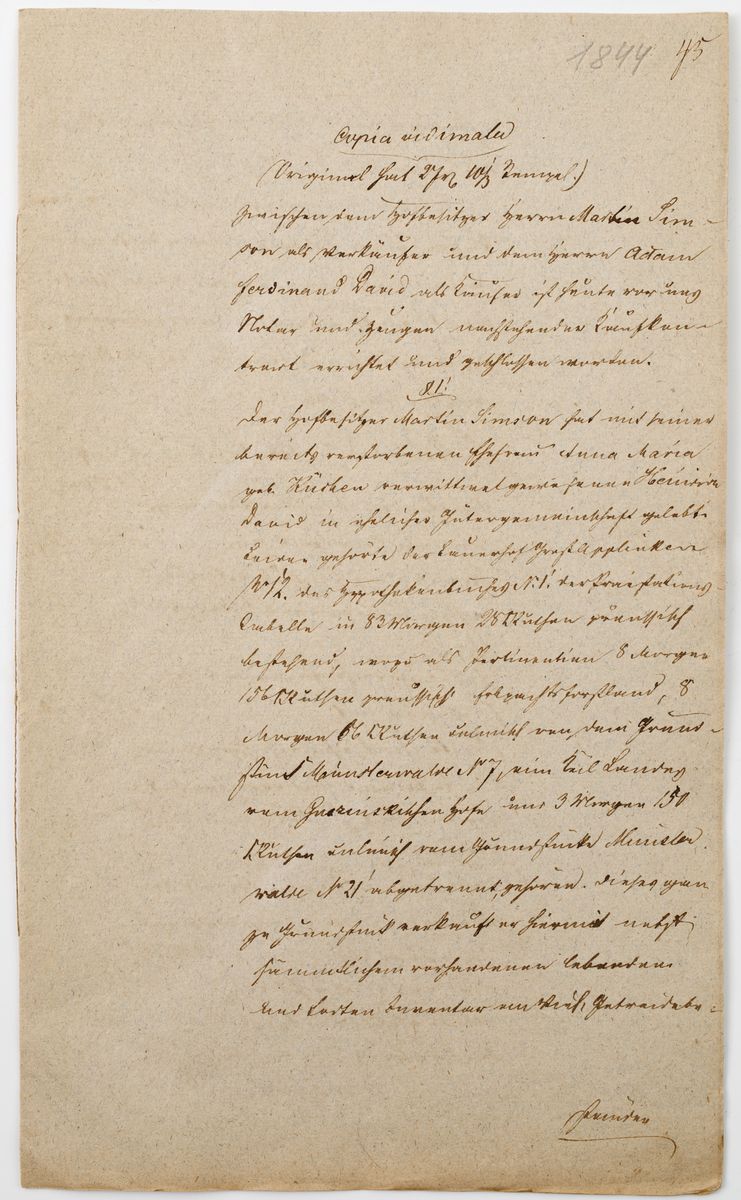 1844 45
Copia vidimata
(Original hat 2 Stempel.)
Zwischen dem Hofbesitzer Herrn Martin Sim-
son als Verkäufer und dem Herrn Adam
Ferdinand David als Käufer ist heute vor uns
Notar und Zeugen nachstehender Kaufkon-
trakt errichtet und geschlossen worden.
§ 1.
Der Hofbesitzer Martin Simson hat mit seiner
bereits verstorbenen Ehefrau Anna Maria
geb. Küchen verwittwet gewesenen
David in ehelicher Gütergemeinschaft gelebt.
Beiden gehörte der Bauerhof Groß Applinken
No 12. des Hypothekenbuches No 1. der Praestations-
Tabelle in 83 Morgen 28 Ruthen preussisch
bestehend, wozu als Pertinentien 8 Morgen
156 Ruthen preussisch Erbpachtsforstland, 8
Morgen 66 Ruthen culmisch von dem Grund-
stück Münsterwalde No 7, ein Teil Landes
vom Hofe und 3 Morgen 150
Ruthen culmisch vom Grundstücke Münster
walde No 21 abgetrennt, gehören. Dieses gan
ze Grundstück verkauft er hiermit nebst
sämmtlichem vorhandenen lebenden
und todten Inventar an Vieh, Getreidebe-
ständen